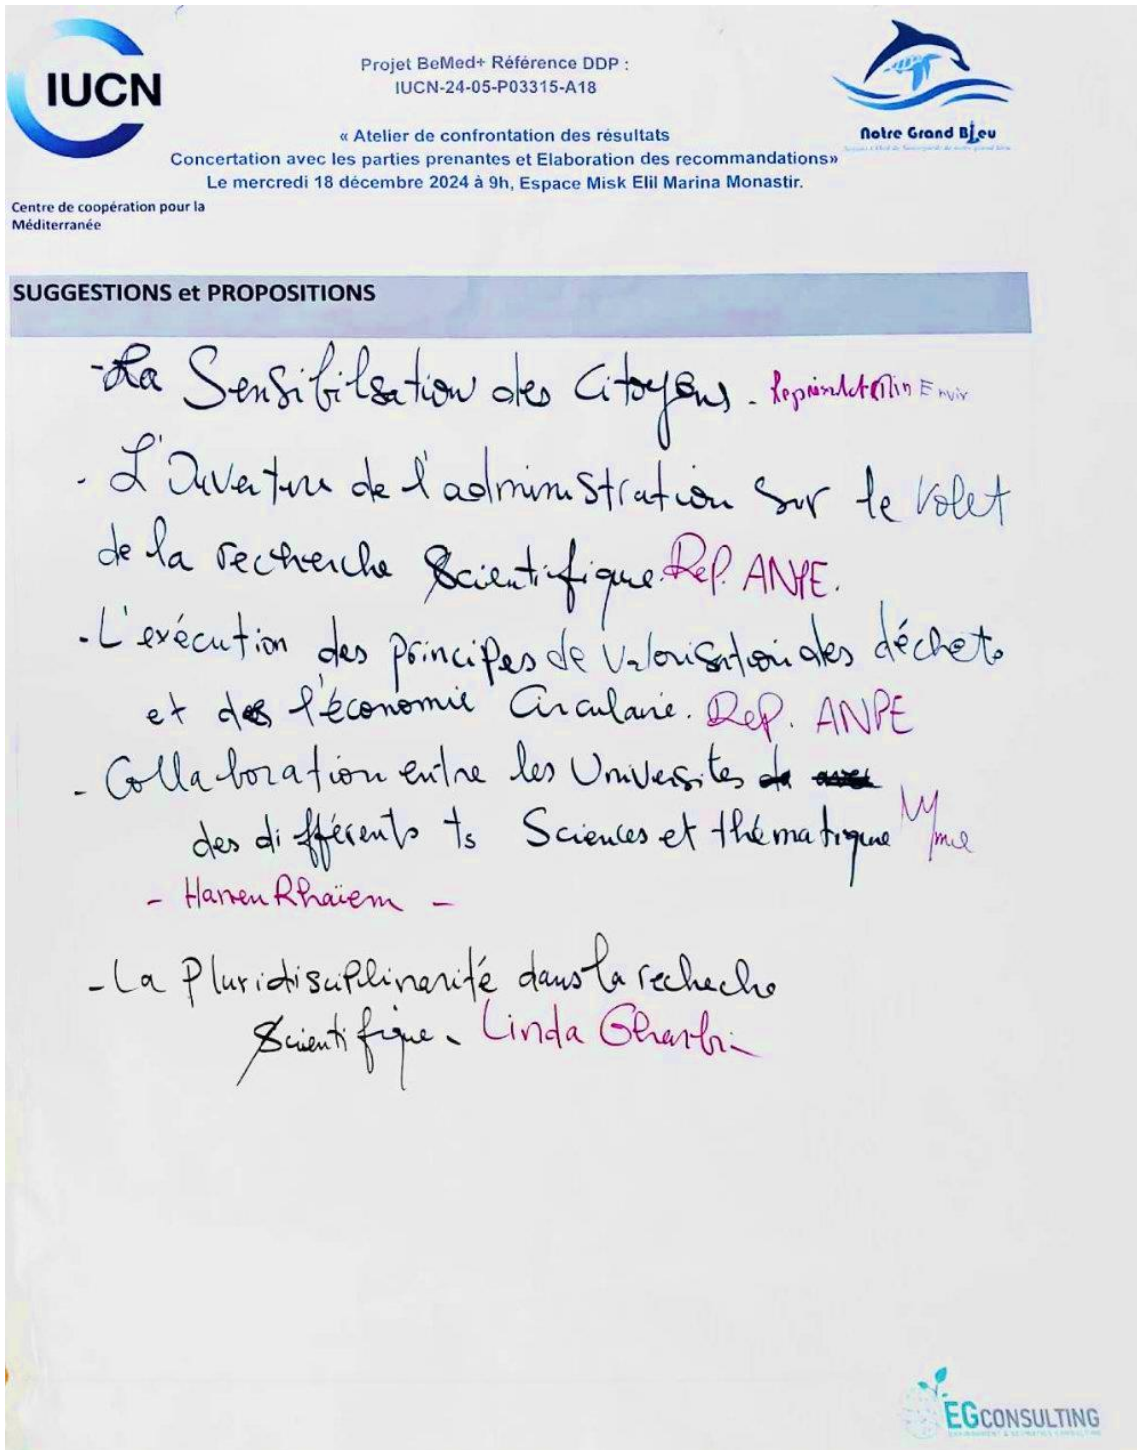 IUCN
Projet BeMed+ Référence DDP :
IUCN-24-05-P03315-A18
« Atelier de confrontation des résultats
Concertation avec les parties prenantes et Elaboration des recommandations»
Le mercredi 18 décembre 2024 à 9h, Espace Misk Elil Marina Monastir.
Notre Grand Bleu
Centre de coopération pour la
Méditerranée
SUGGESTIONS et PROPOSITIONS
- La Sensibilsation des Citoyens. Min Envir
- L'Ouverture de l'administration sur le volet
de la recherche scientifique. Rep. ANPE.
- L'exécution des principes de valorisation des déchets
et de l'économie Circulaire. Rep. ANPE
- Collaboration entre les Universités
des différents ts Sciences et thématique Mme
- Hanen Rhaïem -
- La Pluridisciplinarité dans la recheche
Scientifique. Linda Gharbi
EGCONSULTING